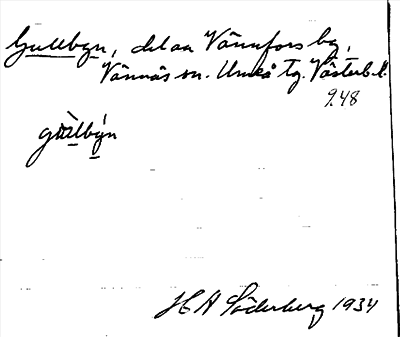 Gullbyn, del av Vännfors by,
Vännäs sn. Umeå tg. Västerb. l.
9.48
gùlbýn
H A Söderberg 1934